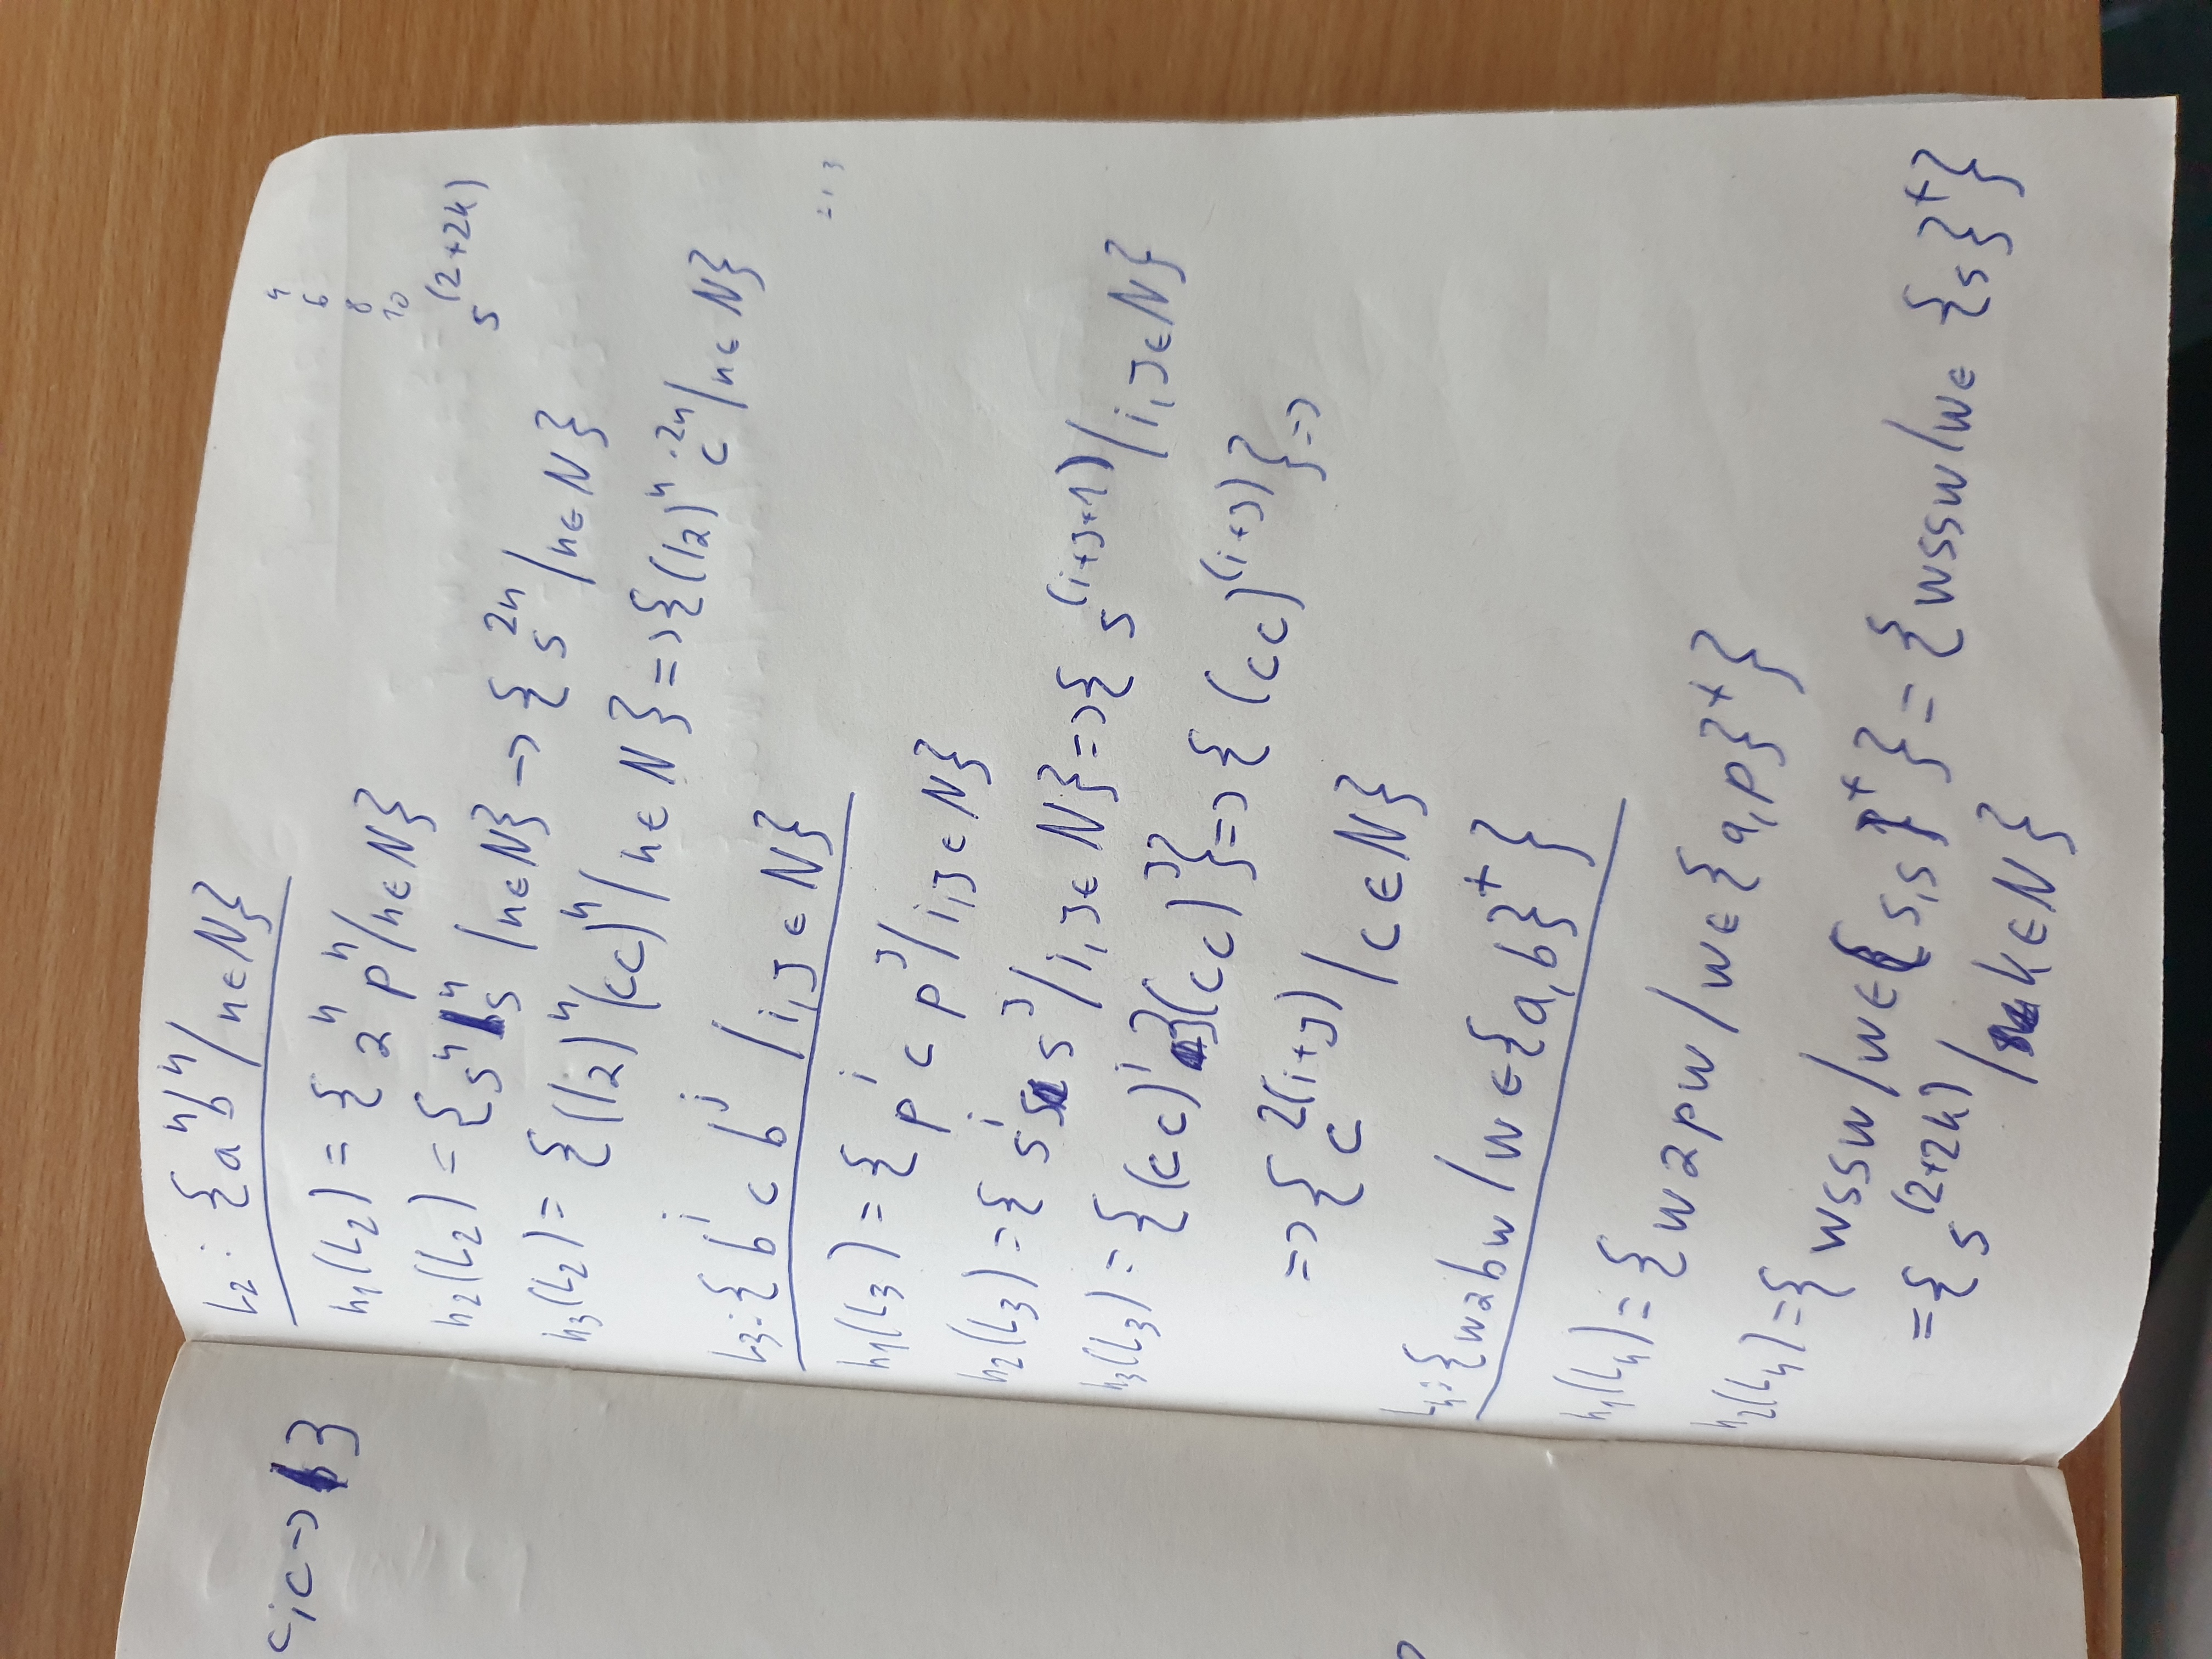 c,c→ }
L2: {aⁿbⁿ/n∈N}
h1(L2) = {aⁿ pⁿ/n∈N}
h2(L2) = {sⁿsⁿ/n∈N} → {s²ⁿ/n∈N}
h3(L2) = {(la)ⁿ(cc)ⁿ/n∈N} => {(la)ⁿ c²ⁿ/n∈N}
4
6
8
10
s^(2+2k)
L3: {bⁱ c bʲ /i,j∈N}
h1(L3) = {pⁱ c pʲ/i,j∈N}
h2(L3) = {sⁱ s sʲ/i,j∈N} => {s^(i+j+1)/i,j∈N}
h3(L3) = {(cc)ⁱ (cc)ʲ} => {(cc)^(i+j)} =>
=> {c^2(i+j)/c∈N}
L4: {wabw/w∈{a,b}⁺}
h1(L4) = {wapw/w∈{a,p}⁺}
h2(L4) = {wssw/w∈{s,s}⁺} = {wssw/w∈{s}⁺}
= {s^(2+2k)/k∈N}